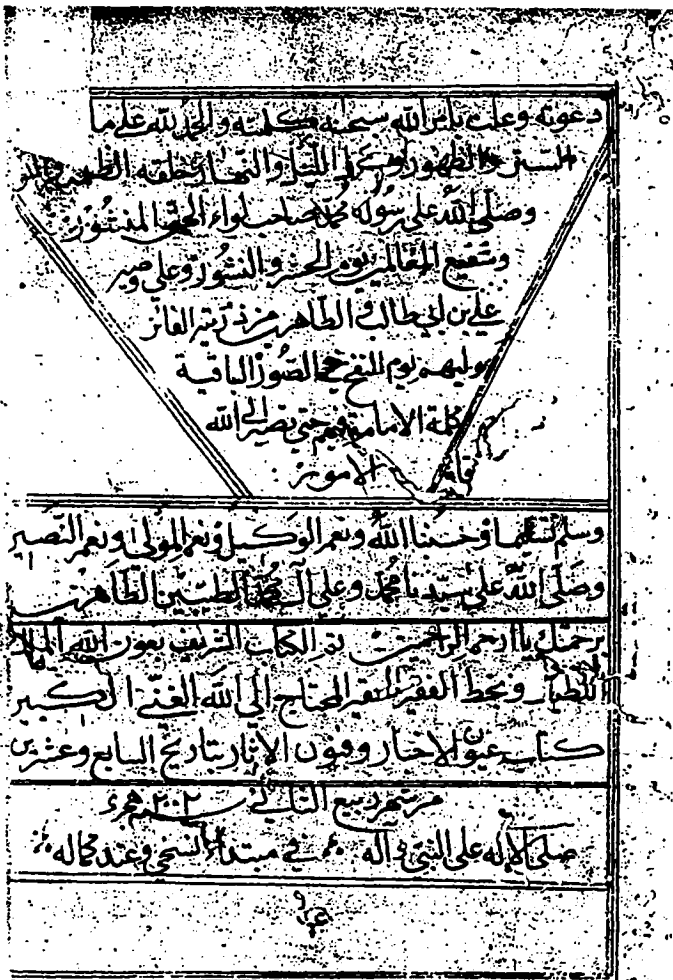 دعوته وعلت بامر الله سبحانه كلمته والحمد لله على ما
الستر والظهور وله الليل والنهار
وصلى الله على رسوله محمد صاحب لواء الحمد المنشور
وشفيع العالمين يوم الحشر والنشور وعلى وصيه
علي بن ابي طالب والطاهرين من ذريته الفائز
وليهم يوم النفخ في الصور الباقية
كلمة الامامة فيهم حتى تصير الى الله
الامور
وسلم تسليما وحسبنا الله ونعم الوكيل ونعم المولى ونعم النصير
وصلى الله على سيدنا محمد وعلى آل محمد الطيبين الطاهرين
برحمتك يا ارحم الراحمين تم الكتاب الشريف بعون الله الملك
وبخط الفقير الحقير المحتاج الى الله الغني الكبير
كتاب عيون الاخبار وفنون الاثار بتاريخ السابع وعشرين
من شهر ربيع الثاني سنة
صلى الاله على النبي وآله في مبتداء النسخ وعند كماله